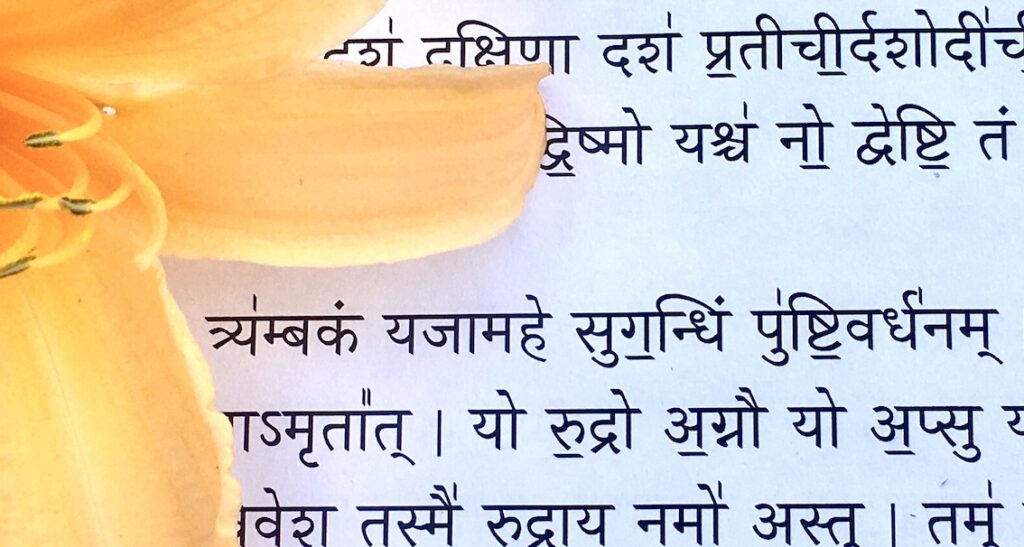 दश॑ दक्षिणा दश॑ प्र॒तीची॒र्दशोदी॑ची
द्वि॒ष्मो यश्च॑ नो॒ द्वेष्टि॒ तं
त्र्य॑म्बकं यजामहे सुग॒न्धिं पु॑ष्टि॒वर्ध॑नम्
ाऽमृता᳚त् । यो रु॒द्रो अ॒ग्नौ यो अ॒प्सु य
वेश तस्मै॑ रुद्राय नमो॑ अस्तु । तमु॑